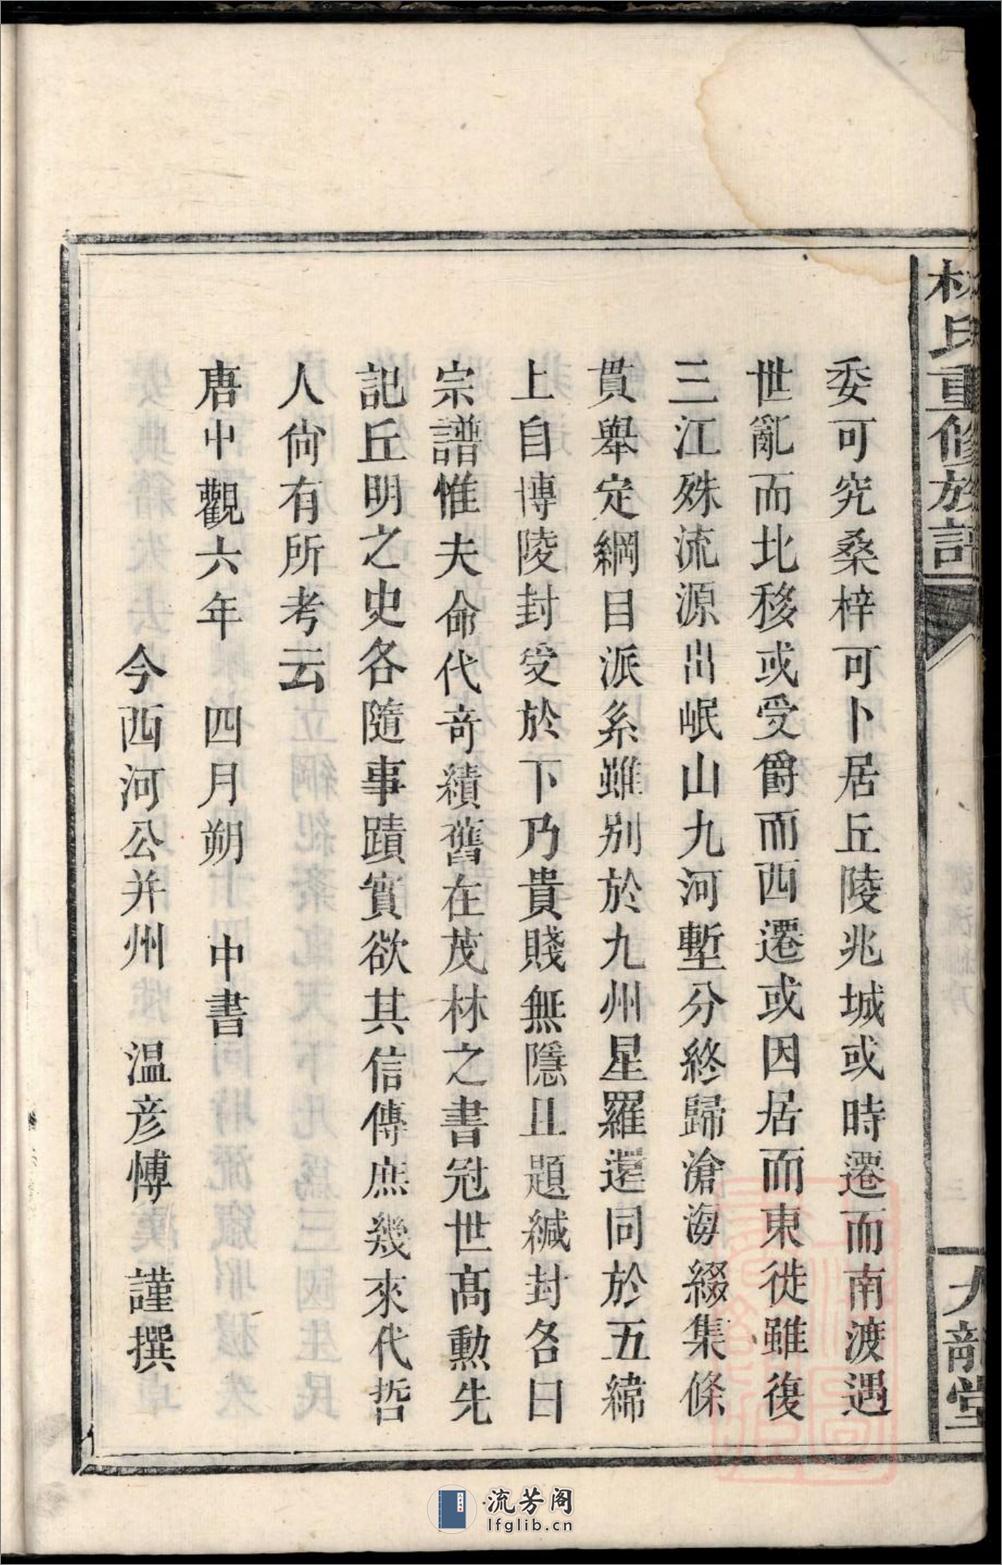 林氏重修族譜
九龍堂
委可究桑梓可卜居丘陵兆城或時遷而南渡遇
世亂而北移或受爵而西遷或因居而東徙雖復
三江殊流源出岷山九河塹分終歸滄海綴集條
貫舉定綱目派系雖别於九州星羅還同於五緯
上自博陵封受於下乃貴賤無隱且題緘封各曰
宗譜惟夫命代奇績舊在茂林之書冠世髙勲先
記丘明之史各隨事蹟實欲其信傳庶幾來代哲
人尙有所考云
唐中觀六年 四月朔 中書
今西河公并州 温彦愽 謹撰
流芳阁
lfglib.cn